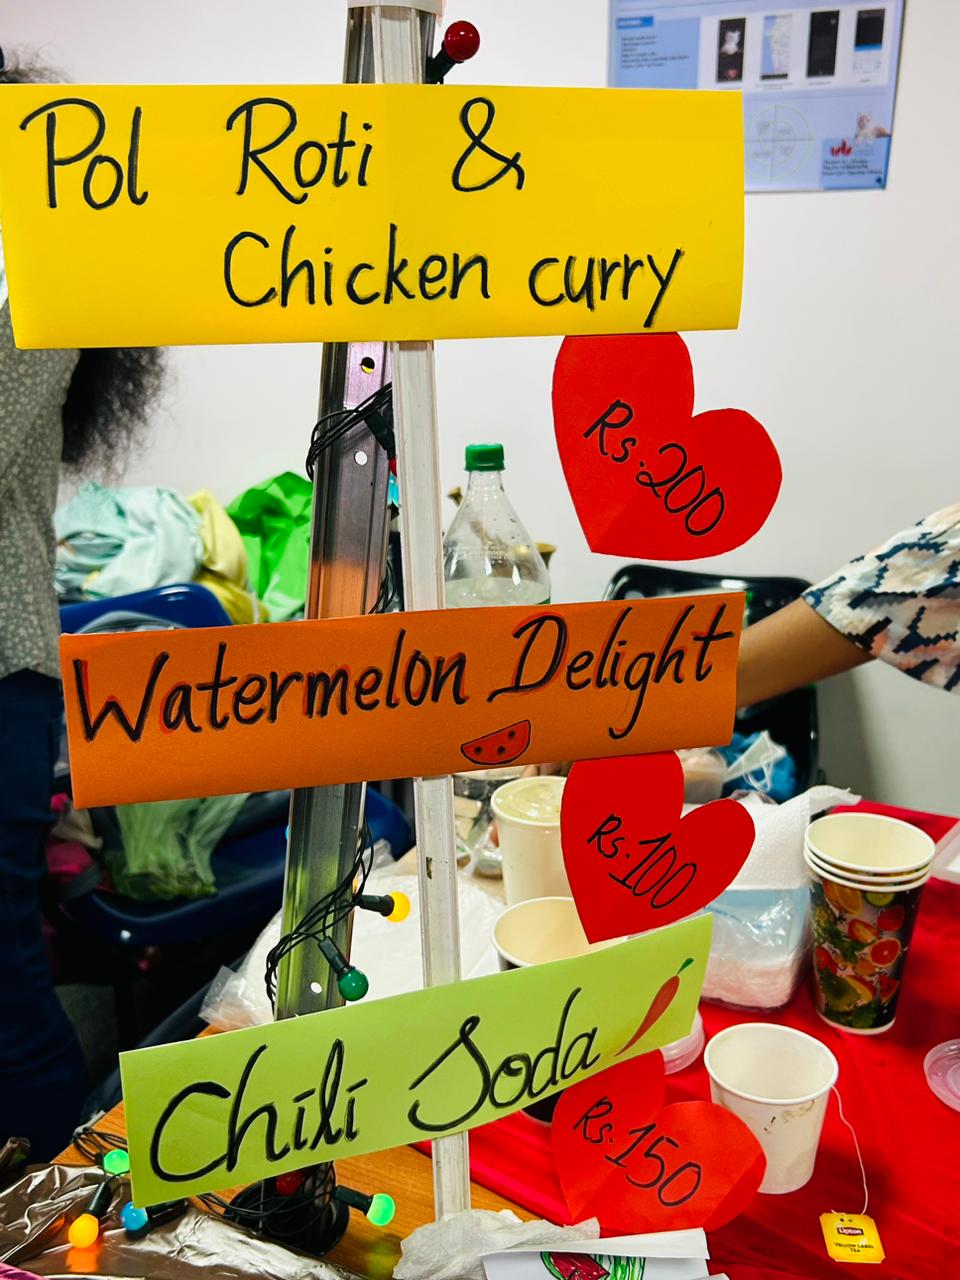 Pol Roti &
Chicken curry
Rs.200
Watermelon Delight
Rs.100
Chili Soda
Rs.150
Lipton
YELLOW LABEL
TEA